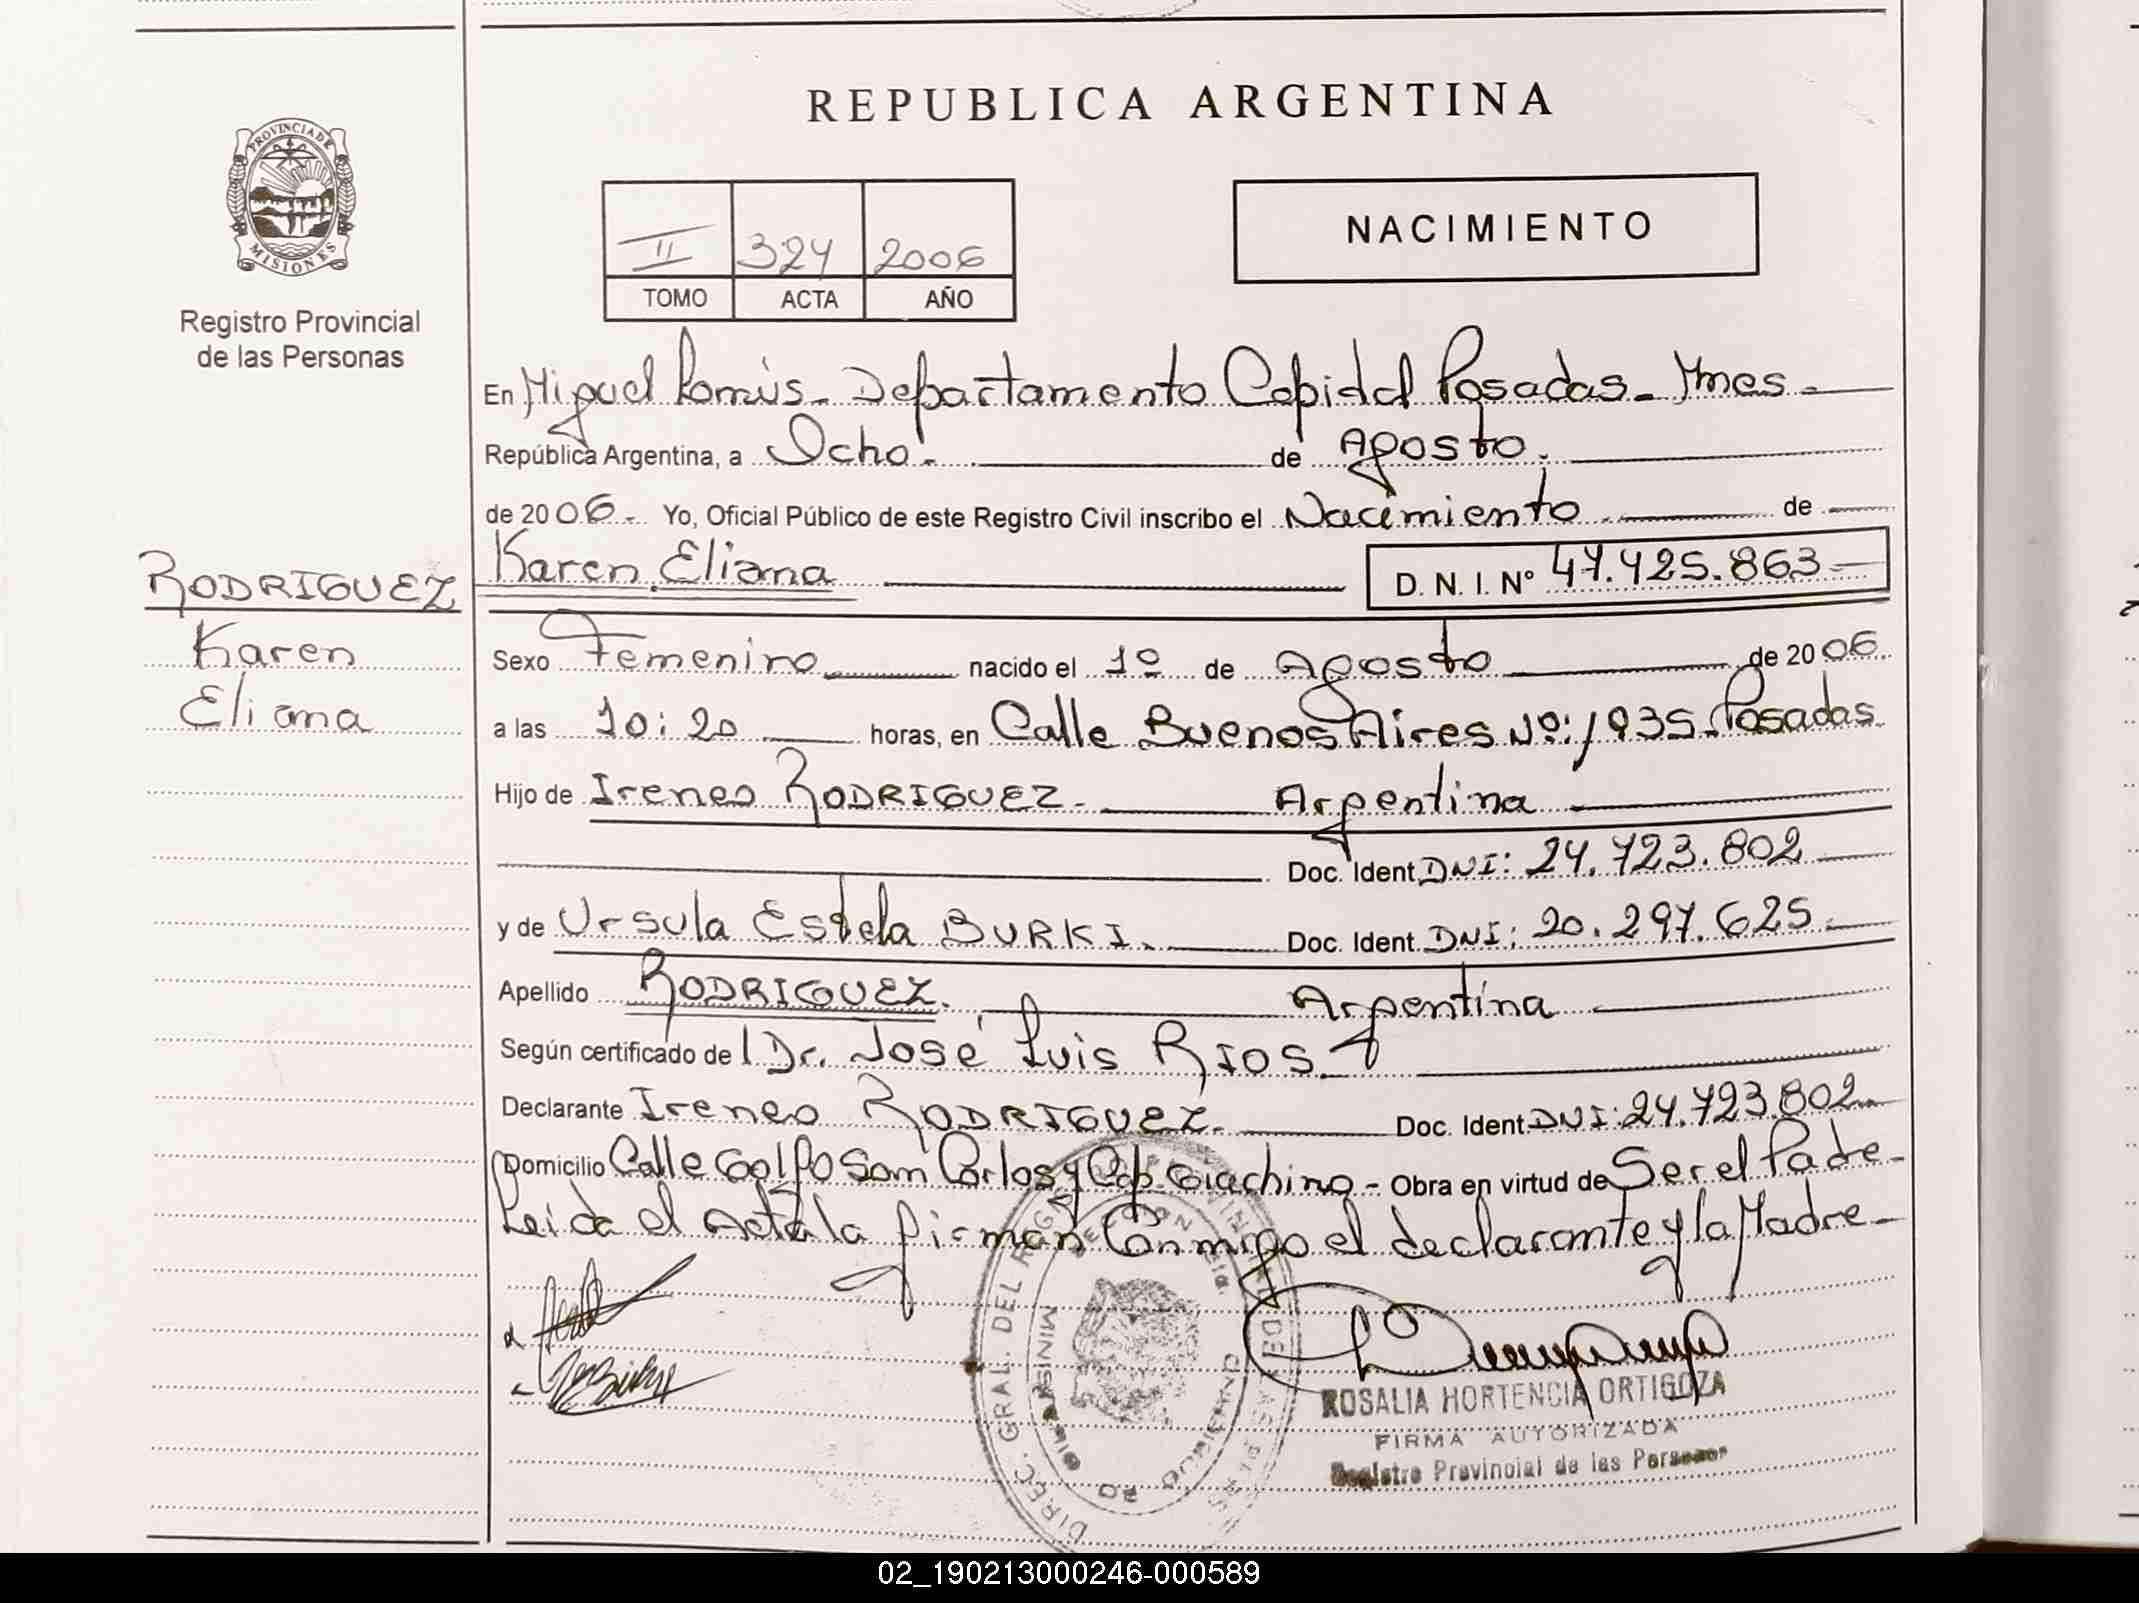 REPUBLICA ARGENTINA
PROVINCIA DE
MISIONES
Registro Provincial
de las Personas
NACIMIENTO
II 324 2006
TOMO ACTA AÑO
En Miguel Lanús - Departamento Capital Posadas - Mnes -
República Argentina, a Ocho.- de Agosto.
de 2006.- Yo, Oficial Público de este Registro Civil inscribo el Nacimiento de
RODRIGUEZ
Karen
Eliana
Karen Eliana D. N. I. Nº 47.425.863
Sexo Femenino nacido el 1º de Agosto de 2006.
a las 10:20 horas, en Calle Buenos Aires Nº: 1935. Posadas
Hijo de Ireneo RODRIGUEZ. Argentina
Doc. Ident DNI: 24.723.802
y de Ursula Estela BURKI. Doc. Ident. DNI: 20.297.625
Apellido RODRIGUEZ. Argentina
Según certificado de l Dr. José Luis RIOS.
Declarante Ireneo RODRIGUEZ. Doc. Ident DNI: 24.723.802
Domicilio Calle Golfo San Carlos y Cap. Giachino - Obra en virtud de Ser el Padre -
Leida el Acta la firman Conmigo el declarante y la Madre -
DIREC. GRAL. DEL
ROSALIA HORTENCIA ORTIGOZA
FIRMA AUTORIZADA
Registro Provincial de las Personas
02_190213000246-000589